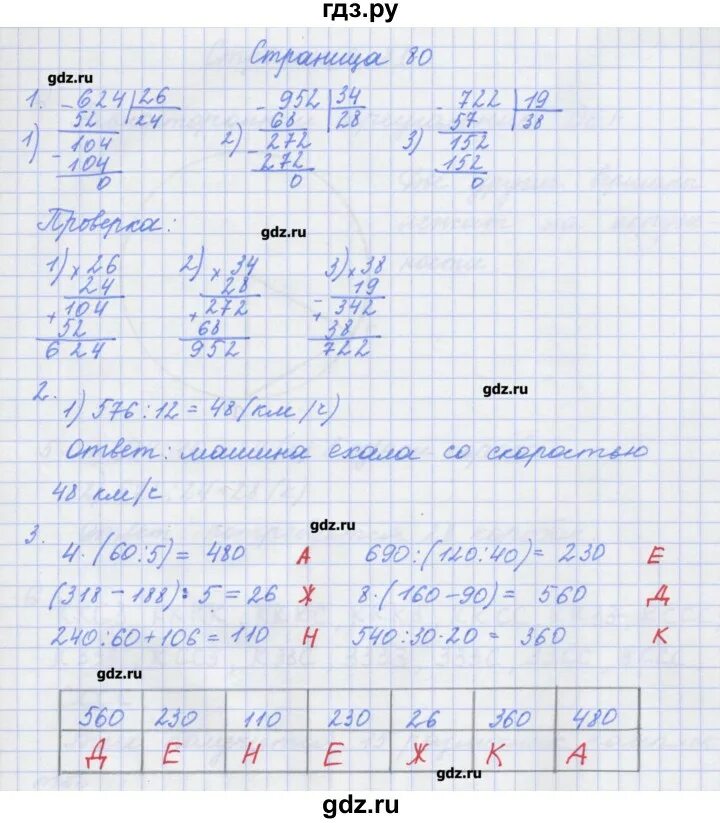 гдз.ру
Страница 80
gdz.ru
1.
1) -624 |26
52 24
104
-104
0
2) -952 |34
68 28
272
-272
0
3) -722 |19
57 38
152
152
0
Проверка:
gdz.ru
1) ×26
24
+104
52
624
2) ×34
28
+272
68
952
3) ×38
19
+342
38
722
gdz.ru
2.
1) 576:12=48(км/ч)
Ответ: машина ехала со скоростью
48 км/ч
gdz.ru
3.
4·(60:5)= 480 А 690:(120:40)= 230 Е
(318-188):5=26 Ж 8·(160-90)= 560 Д
240:60+106=110 Н 540:30·20= 360 К
gdz.ru
560 230 110 230 26 360 480
Д Е Н Е Ж К А
gdz.ru
gdz.ru